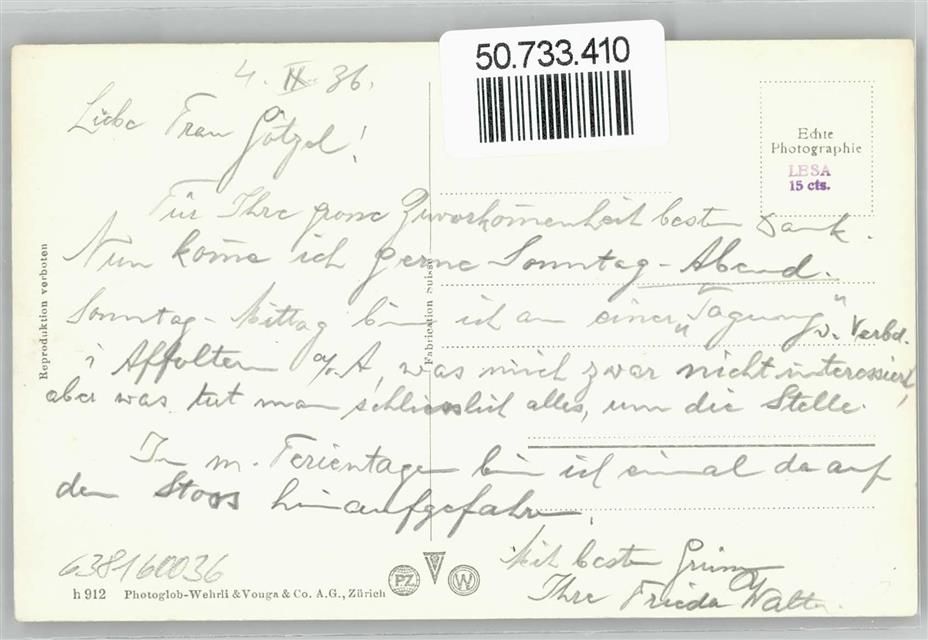 50.733.410
4. II. 36.
Liebe Frau Götzel!
Echte
Photographie
LESA
15 cts.
Für Ihre grosse Zuvorkom̄enheit besten Dank.
Nun kom̄e ich gerne Sonntag-Abend.
Sonntag-Mittag bin ich an einer „Tagung" v. Verbd.
i Affoltern a/A, was mich zwar nicht interessiert,
aber was tut man schliesslich alles, um die Stelle.
In m. Ferientagen bin ich einmal da auf
den Stoss hinaufgefahren.
Mit besten Grüssen
Ihre Frieda Walter.
638160036
h 912 Photoglob-Wehrli & Vouga & Co. A.G., Zürich
PZ
V
W
Reproduktion verboten
Fabrication suisse